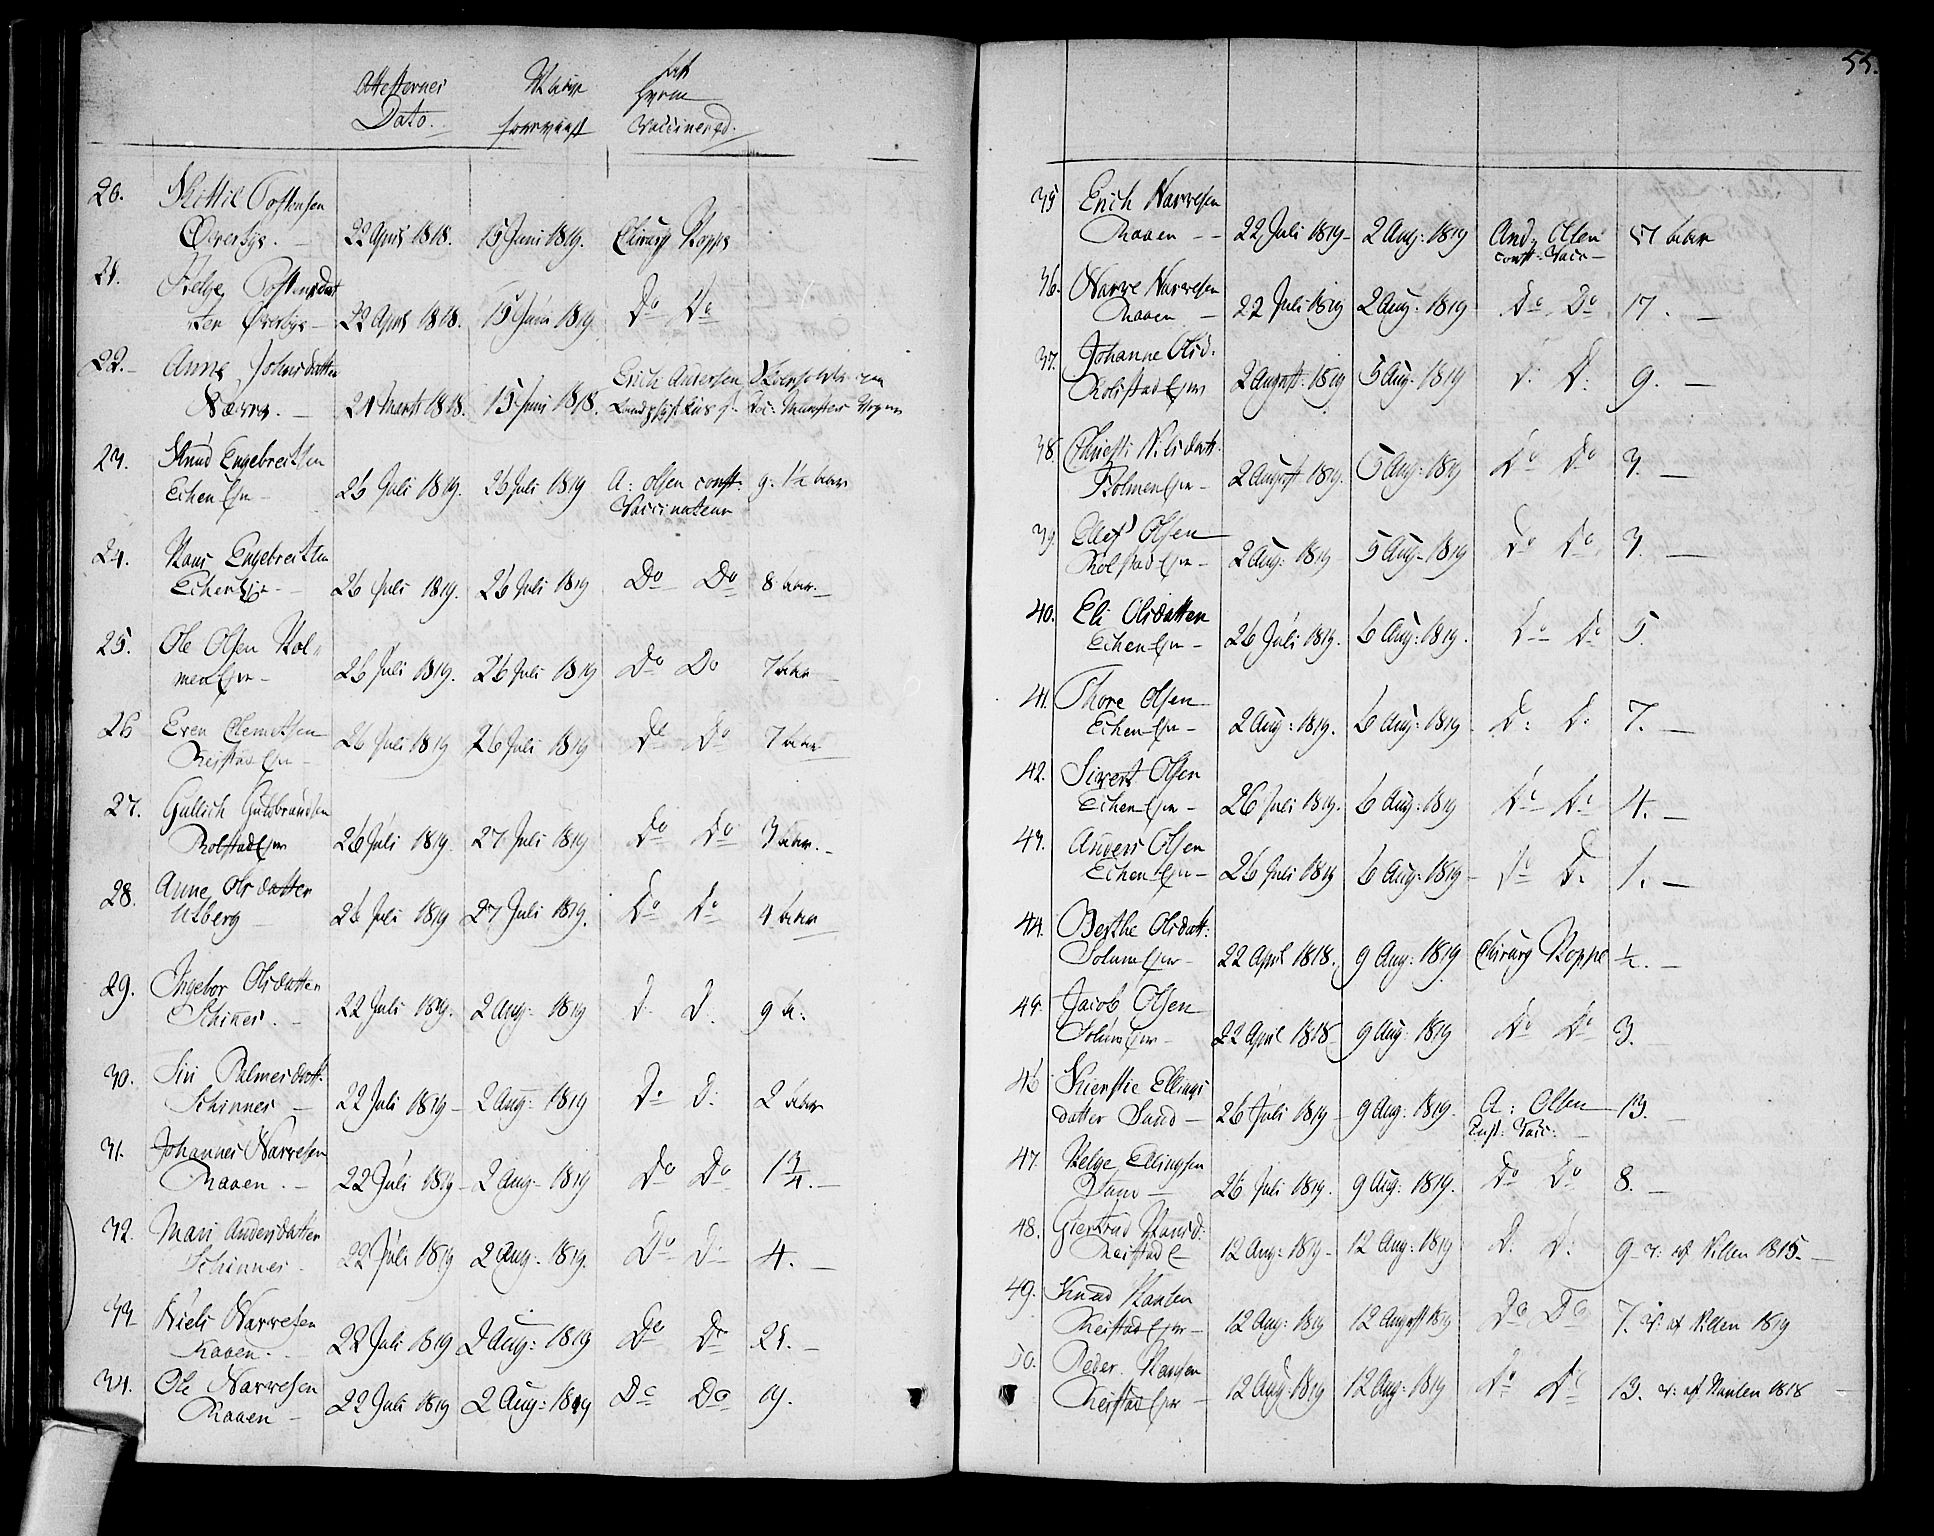 Attesternes
Dato.
Naar
foreviist
Vaccinered.
20. Kittil Tostensen
Øverbye. — 22 April 1818. 15 Juni 1819. Chirurg Kopps
21. Helge Tostensdat
ter Øverbye — 22 April 1818. 15 Juni 1819 Do Do
22. Anne Johnsdatter
21 Marts 1818. 15 Juni 1818. Erich Andersen
23. Knud Engebretsen
Echen Ejer — 26 Juli 1819. 26 Juli 1819 A: Olsen const: 9: 1/2 aar
Vaccinateur
24. Hans Engebretsen
Echen Ejer — 26 Juli 1819. 26 Juli 1819 Do Do 8 aar. —
25. Ole Olsen Hol„
men Ejer — 26 Juli 1819. 26 Juli 1819 Do Do 7 aar
26 Even Clemetsen
Reistad Ejer — 26 Juli 1819 26 Juli 1819 Do Do 7 aar
27. Gullich Guldbrandsen
Rolstad Ejer 26 Juli 1819. 27 Juli 1819 Do Do 3 aar. —
28. Anne Olsdatter
Ulberg — 26 Juli 1819 27 Juli 1819. Do Do 4 aar
29. Ingebor Olsdatter
Schiner. — 22 Juli 1819. 2 Aug: 1819 D: D. 9 a:
30. Siri Palmesdatt:
Schinnes — 22 Juli 1819 — 2 Aug: 1819 Do D: 2 aar
31. Johannes Narvesen
Raaen. — 22 Juli 1819 — 2 Aug: 1819 Do Do 1 3/4. —
32. Mari Andersdatter
Schinnes 22 Juli 1819 2 Aug: 1819. Do D: 4. —
33 Niels Narvesen
Raaen. — 22 Juli 1819 2 Aug: 1819 Do Do 21. —
34. Ole Narvesen
Raaen — 22 Juli 1819 2 Aug: 1819 Do Do 19.
55.
35 Erich Narvesen
Raaen — — 22 Juli 1819 — 2 Aug: 1819 And: Olsen 17 aar
const: Vacc —
36. Narve Narvesen
Raaen — 22 Juli 1819 2 Aug: 1819 Do Do 17. —
37. Johanne Olsd.
Rolstad Ejer 2 August: 1819 5 Aug: 1819 D: D: 9. —
38. Chirsti Nilsdatt:
Holmen Ejer — 2 August 1819. 5 Aug: 1819 Do Do 3. —
39. Ellef Olsen
Rolstad Ejer — 2 Aug: 1819 5 Aug: 1819 Do Do 3. —
40. Eli Olsdatter
Echen Ejer — 26 Juli 1819. 6 Aug: 1819. Do Do 5.
41. Thore Olsen
Echen Ejer — 2 Aug: 1819. 6 Aug: 1819 D: D: 7. —
42. Sivert Olsen
Echen Ejer — 26 Juli 1819. 6 Aug: 1819 Do Do 4. —
43. Anders Olsen
Echen Ejer — 26 Juli 1819 6 Aug: 1819 — Do D: 1. —
44. Berthe Olsdatt:
Solum Ejer — 22 April 1818. 9 Aug: 1819 Chirurg Kopps 1/2. —
45. Jacob Olsen
Solum Ejer — 22 April 1818 — 9 Aug: 1819 Do Do 3.
46 Kierstie Ellings
datter Sand — 26 Juli 1819 — 9 Aug: 1819. A: Olsen 13. —
Const: Vacc: —
47. Helge Ellingsen
Sand — 26 Juli 1819. 9 Aug: 1819. Do Do 8. —
48. Giertrud Hansd:
Reistad E — 12 Aug: 1819 — 12 Aug: 1819 D: D: 9 1815. —
49. Knud Hansen
Reistad Ejer — 12 Aug: 1819 12 August 1819 Do Do 7. 1819
50. Peder Hansen
Reistad Ejer — 12 Aug: 1819 12 Aug: 1819 Do Do 13. 1818 —